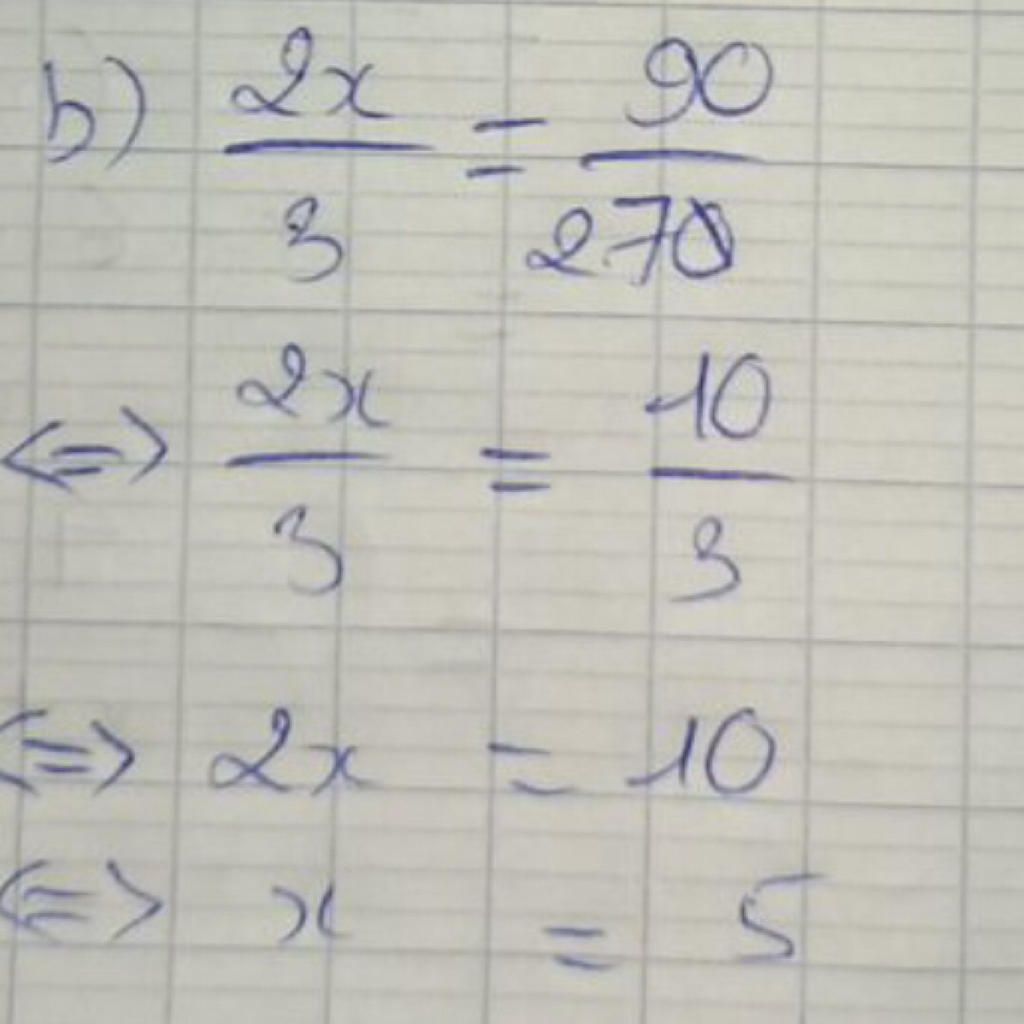 b) 2x/3 = 90/270
<=> 2x/3 = 10/3
<=> 2x = 10
<=> x = 5